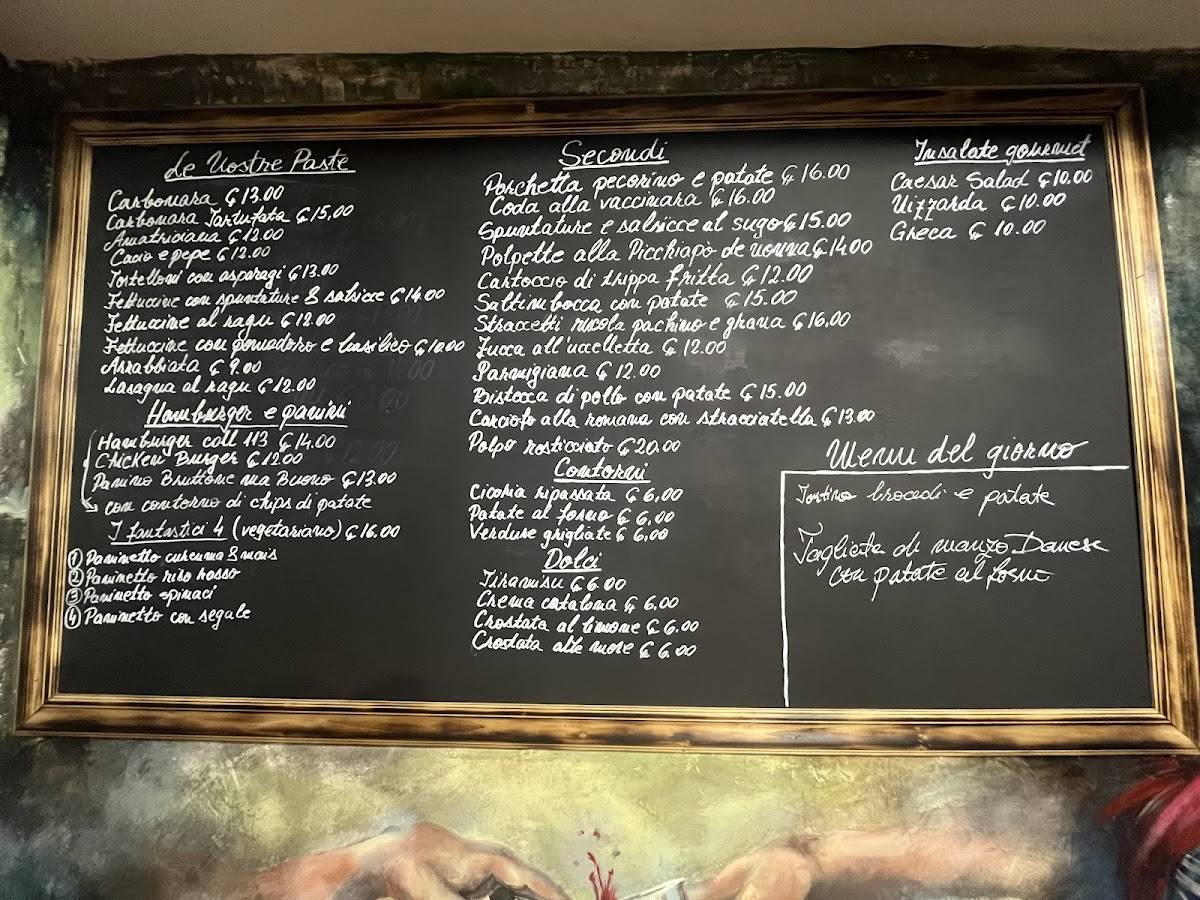 Le Nostre Paste
Carbonara € 13.00
Carbonara Tartufata € 15,00
Amatriciana € 12.00
Cacio e pepe € 12.00
Tortelloni con asparagi € 13.00
Fettuccine con spuntature & salsicce € 14.00
Fettuccine al ragu € 12.00
Fettuccine con pomodoro e basilico € 10.00
Arrabbiata € 9.00
Lasagna al ragu € 12.00
Hamburger e panini
Hamburger coll 113 € 14.00
Chicken Burger € 12.00
Panino Bruttone ma Buono € 13.00
con contorno di chips di patate
I fantastici 4 (vegetariano) € 16.00
① Paninetto curcuma & mais
② Paninetto riso rosso
③ Paninetto spinaci
④ Paninetto con segale
Secondi
Porchetta pecorino e patate € 16.00
Coda alla vaccinara € 16.00
Spuntature e salsicce al sugo € 15.00
Polpette alla Picchiapò de nonna € 14.00
Cartoccio di trippa fritta € 12.00
Saltimbocca con patate € 15.00
Straccetti rucola pachino e grana € 16,00
Zucca all'uccelletta € 12.00
Parmigiana € 12.00
Bistecca di pollo con patate € 15.00
Carciofo alla romana con stracciatella € 13.00
Polpo rosticciato € 20.00
Contorni
Cicoria ripassata € 6,00
Patate al forno € 6,00
Verdure grigliate € 6,00
Dolci
Tiramisu € 6.00
Crema catalana € 6,00
Crostata al limone € 6.00
Crostata alle more € 6.00
Insalate gourmet
Caesar Salad € 10.00
Nizzarda € 10.00
Greca € 10.00
Menu del giorno
Tortino brocoli e patate
Tagliata di manzo Danese
con patate al forno